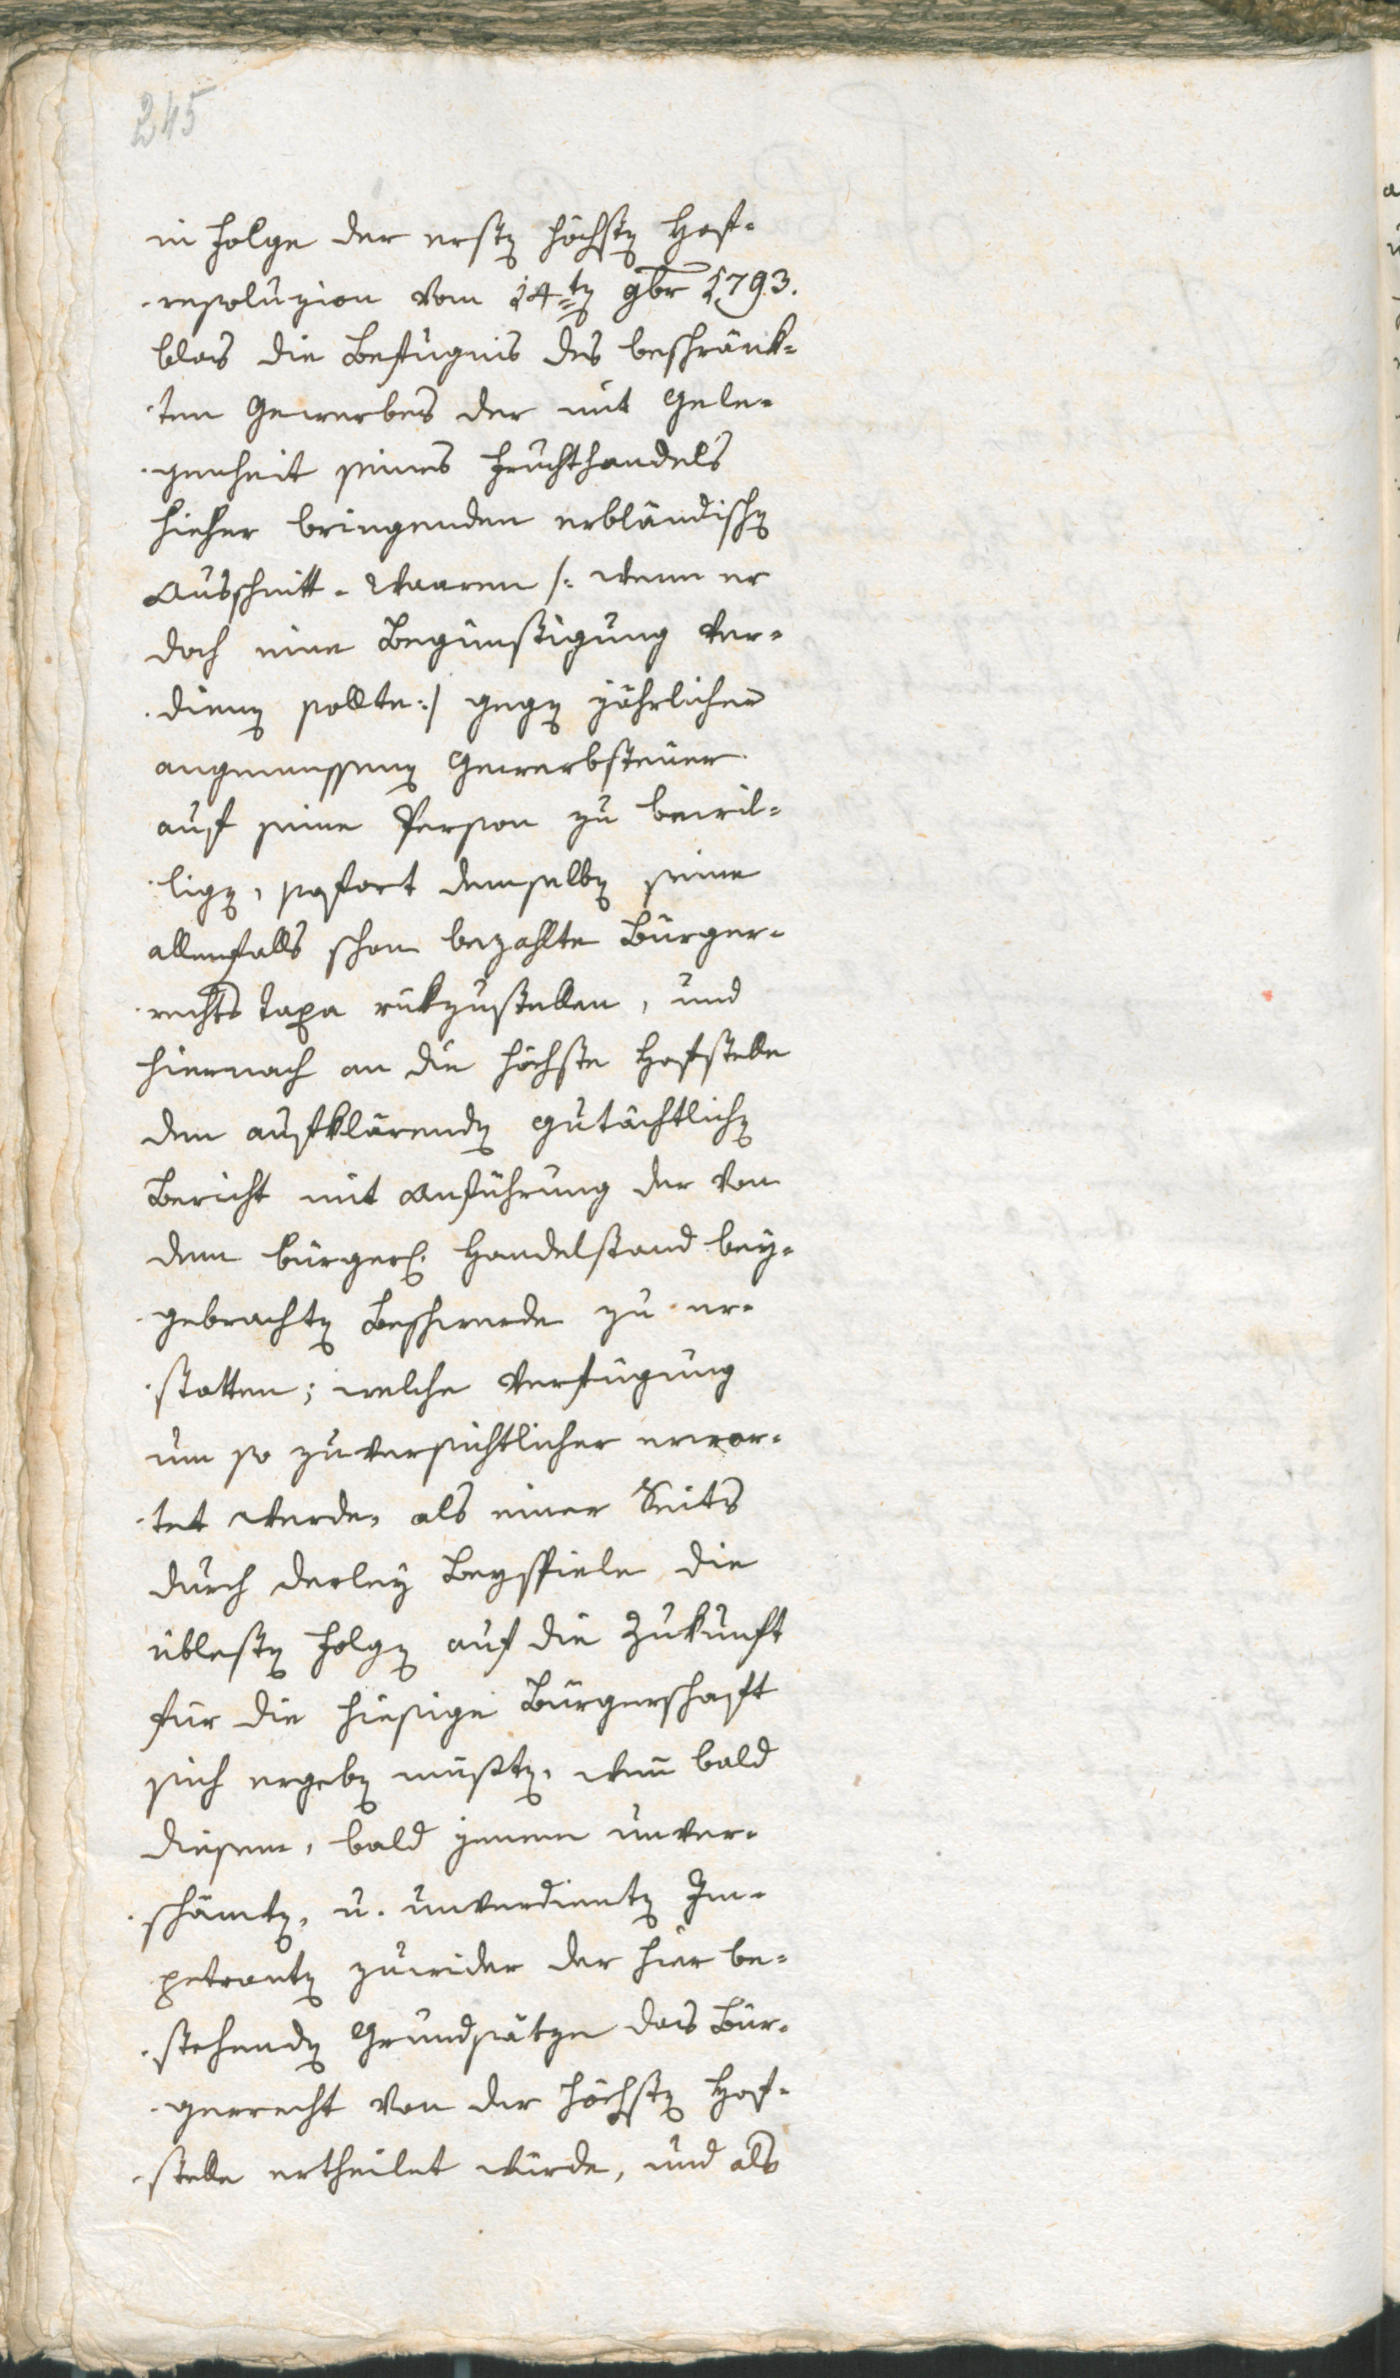 245
in Folge der erstn höchstn Hof-
resoluzion vom 14tn 9br 1793.
blos die Befugnis des beschränk-
ten Gewerbes der mit Gele-
genheit seines Fruchthandels
hieher bringenden erbländischn
Ausschnitt-Waaren /: wenn er
doch eine Begünstigung ver-
dienn sollte :/ gegn jährlicher
angemessenn Gewerbsteuer
auf seine Person zu bewil-
lign, sofort demselbn seine
allenfalls schon bezahlte Bürger-
rechts Taxa rükzustellen, und
hiernach an die höchste Hofstelle
den aufklärendn gutächtlichn
Bericht mit Anführung der von
dem bürgerl. Handelstand bey-
gebrachtn Beschwerde zu er-
statten; welche Verfügung
um so zuversichtlicher erwar-
tet werde, als einer Seits
durch derley Beyspiele die
üblestn Folgn auf die Zukunft
für die hiesige Bürgerschaft
sich ergebn müßtn, wen̅ bald
diesem, bald jenem unver-
schämtn, u. unverdientn Im-
petrantn zuwider der hier be-
stehendn Grundsätze das Bür-
gerrecht von der höchstn Hof-
stelle ertheilet würde, und als